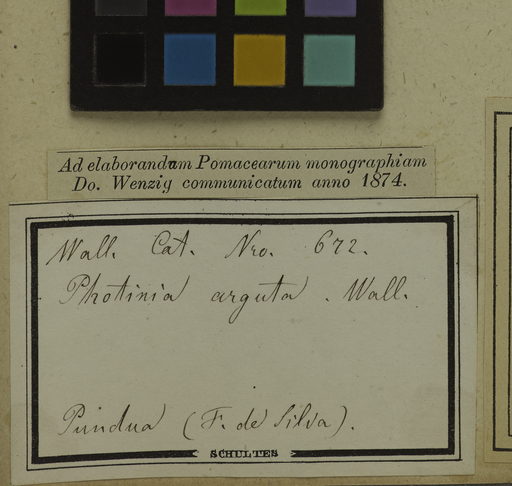 Ad elaborandum Pomacearum monographiam
Do. Wenzig communicatum anno 1874.
Wall. Cat. Nro. 672.
Photinia arguta. Wall.
Pundua (F. de Silva).
SCHULTES